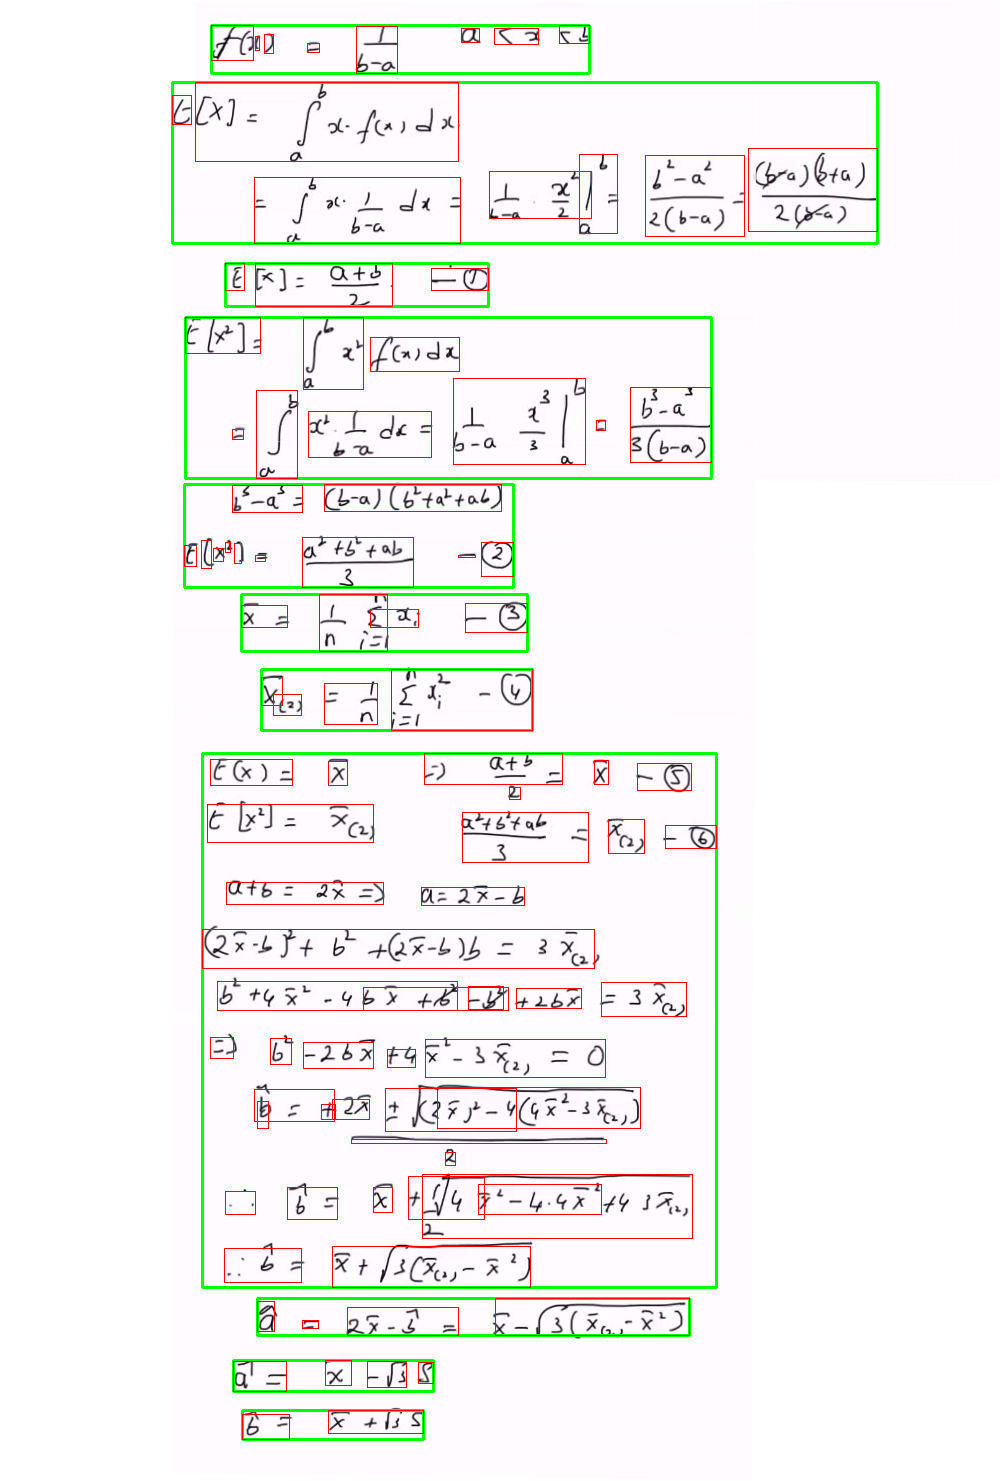 f(x) = 1/(b-a) a < x < b
E[X] = ∫_a^b x. f(x) dx
= ∫_a^b x. 1/(b-a) dx = 1/(b-a) . x²/2 |_a^b = (b²-a²)/(2(b-a)) = (b-a)(b+a)/(2(b-a))
E[x] = (a+b)/2 - ①
E[x²] = ∫_a^b x² f(x) dx
= ∫_a^b x². 1/(b-a) dx = 1/(b-a) x³/3 |_a^b = (b³-a³)/(3(b-a))
b³-a³ = (b-a)(b²+a²+ab)
E(x²) = (a²+b²+ab)/3 - ②
x̄ = 1/n Σ_{i=1}^n x_i - ③
x̄_(2) = 1/n Σ_{i=1}^n x_i² - ④
E(x) = x̄ => (a+b)/2 = x̄ - ⑤
E[x²] = x̄_(2) (a²+b²+ab)/3 = x̄_(2) - ⑥
a+b = 2x̄ => a = 2x̄-b
(2x̄-b)²+ b² +(2x̄-b)b = 3 x̄_(2)
b²+4x̄²-4bx̄ +b² -b² +2bx̄ = 3 x̄_(2)
=> b² -2bx̄ +4x̄²-3x̄_(2) = 0
b̂ = +2x̄ ± √((2x̄)²-4(4x̄²-3x̄_(2))) / 2
∴ b̂ = x̄ + √(4x̄²-4.4x̄²+4 3x̄_(2)) / 2
∴ b̂ = x̄ + √(3(x̄_(2) - x̄²))
â = 2x̄-b̂ = x̄-√(3(x̄_(2)-x̄²))
â = x̄ -√3 S
b̂ = x̄ +√3 S